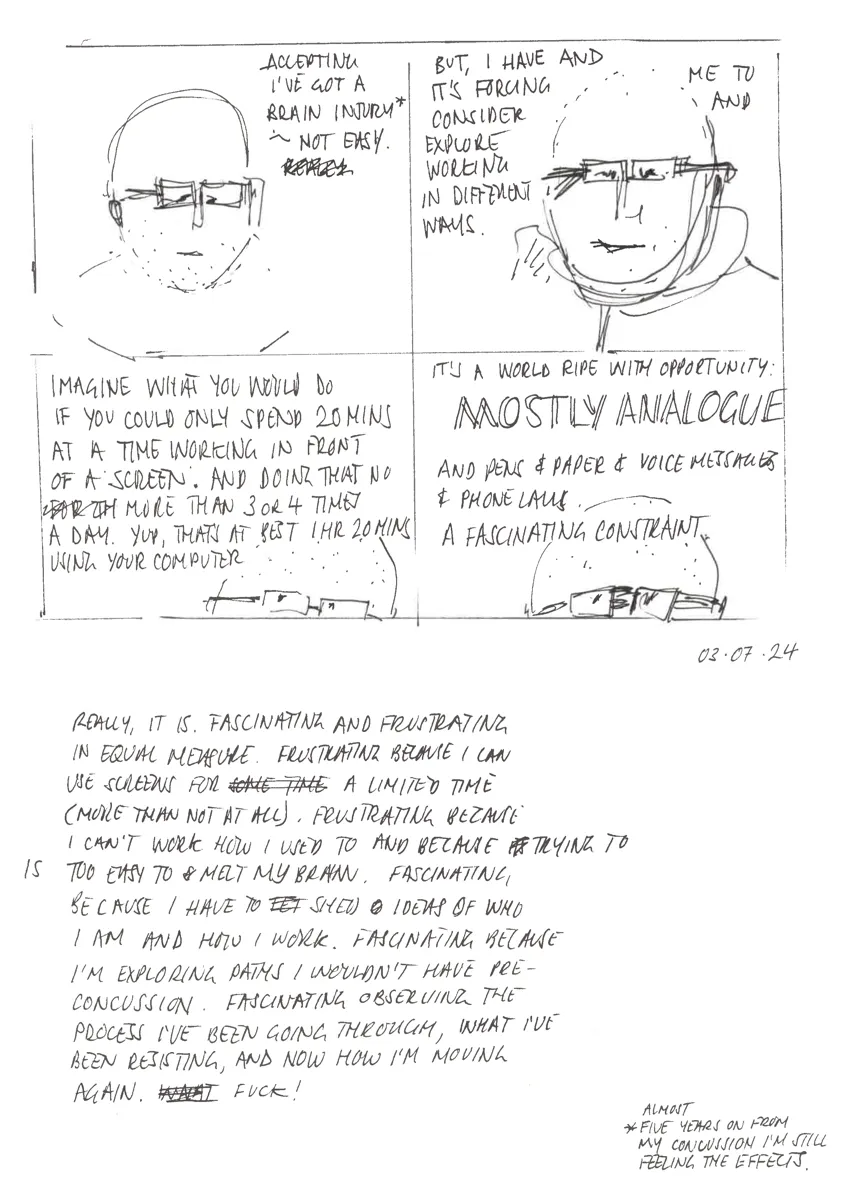 ACCEPTING
I'VE GOT A
BRAIN INJURY*
~ NOT EASY.
BUT, I HAVE AND
IT'S FORCING ME TO
CONSIDER AND
EXPLORE
WORKING
IN DIFFERENT
WAYS.
IMAGINE WHAT YOU WOULD DO
IF YOU COULD ONLY SPEND 20 MINS
AT A TIME WORKING IN FRONT
OF A 'SCREEN'. AND DOING THAT NO
MORE THAN 3 OR 4 TIMES
A DAY. YUP, THATS AT BEST 1 HR 20 MINS
USING YOUR COMPUTER
IT'S A WORLD RIPE WITH OPPORTUNITY:
MOSTLY ANALOGUE
AND PENS & PAPER & VOICE MESSAGES
& PHONE CALLS.
A FASCINATING CONSTRAINT.
03.07.24
REALLY, IT IS. FASCINATING AND FRUSTRATING
IN EQUAL MEASURE. FRUSTRATING BECAUSE I CAN
USE SCREENS FOR SOME TIME A LIMITED TIME
(MORE THAN NOT AT ALL). FRUSTRATING BECAUSE
I CAN'T WORK HOW I USED TO AND BECAUSE TRYING TO
IS TOO EASY TO MELT MY BRAIN. FASCINATING,
BECAUSE I HAVE TO SHED IDEAS OF WHO
I AM AND HOW I WORK. FASCINATING BECAUSE
I'M EXPLORING PATHS I WOULDN'T HAVE PRE-
CONCUSSION. FASCINATING OBSERVING THE
PROCESS I'VE BEEN GOING THROUGH, WHAT I'VE
BEEN RESISTING, AND NOW HOW I'M MOVING
AGAIN. WHAT FUCK!
ALMOST
* FIVE YEARS ON FROM
MY CONCUSSION I'M STILL
FEELING THE EFFECTS.